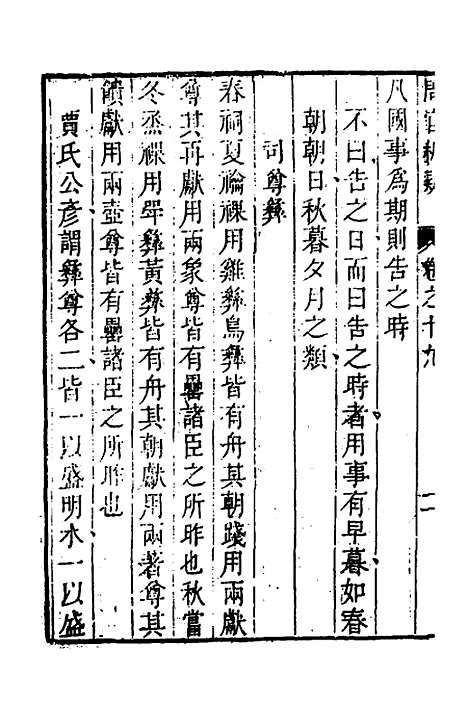 卷之十九 二
凡國事為期則告之時
不曰告之日而曰告之時者用事有早暮如春
朝朝日秋暮夕月之類
司尊彝
春祠夏禴祼用雞彝鳥彝皆有舟其朝踐用兩獻
尊其再獻用兩象尊皆有罍諸臣之所昨也秋嘗
冬烝祼用斝彝黃彝皆有舟其朝獻用兩著尊其
饋獻用兩壺尊皆有罍諸臣之所昨也
賈氏公彥謂彝尊各二皆一以盛明水一以盛